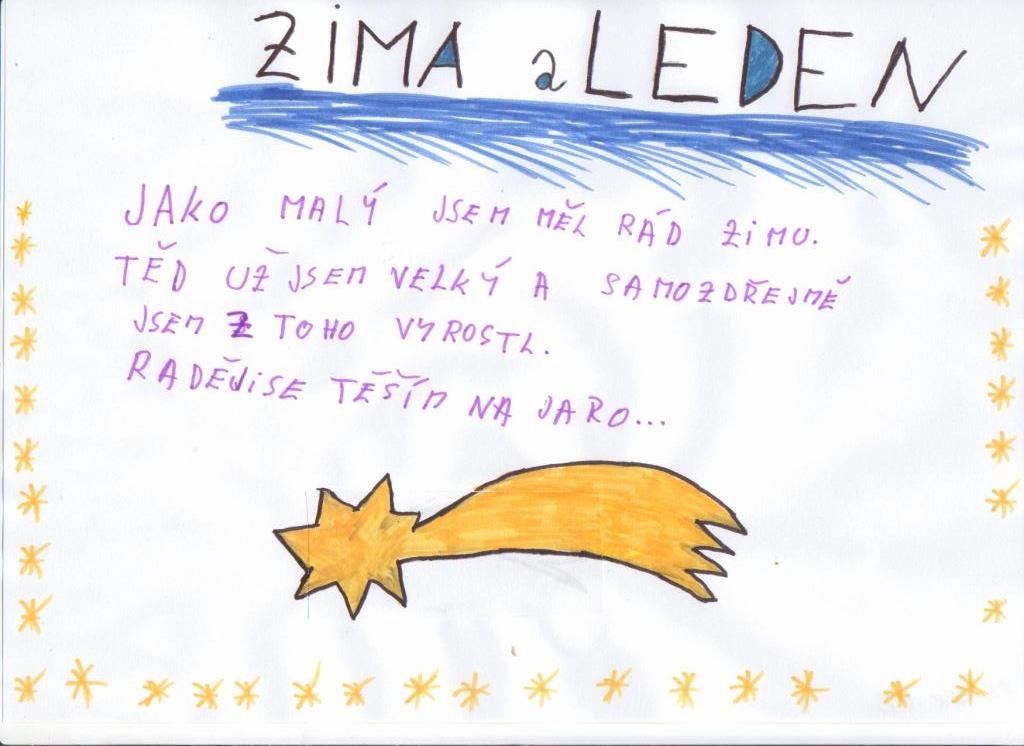 ZIMA a LEDEN
JAKO MALÝ JSEM MĚL RÁD ZIMU.
TĚD UŽ JSEM VELKÝ A SAMOZDŘEJMĚ
JSEM Z TOHO VYROSTL.
RADĚJI SE TĚŠÍM NA JARO...